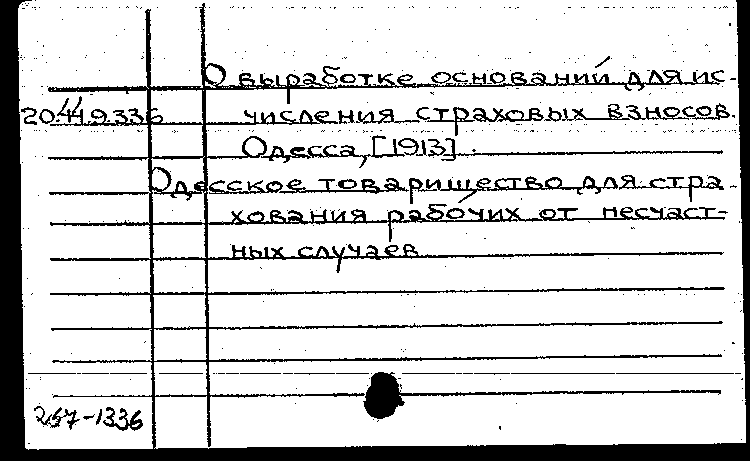 О выработке оснований для ис-
20.449.336 числения страховых взносов.
Одесса, [1913].
Одесское товарищество для стра-
хования рабочих от несчаст-
ных случаев
267-1336